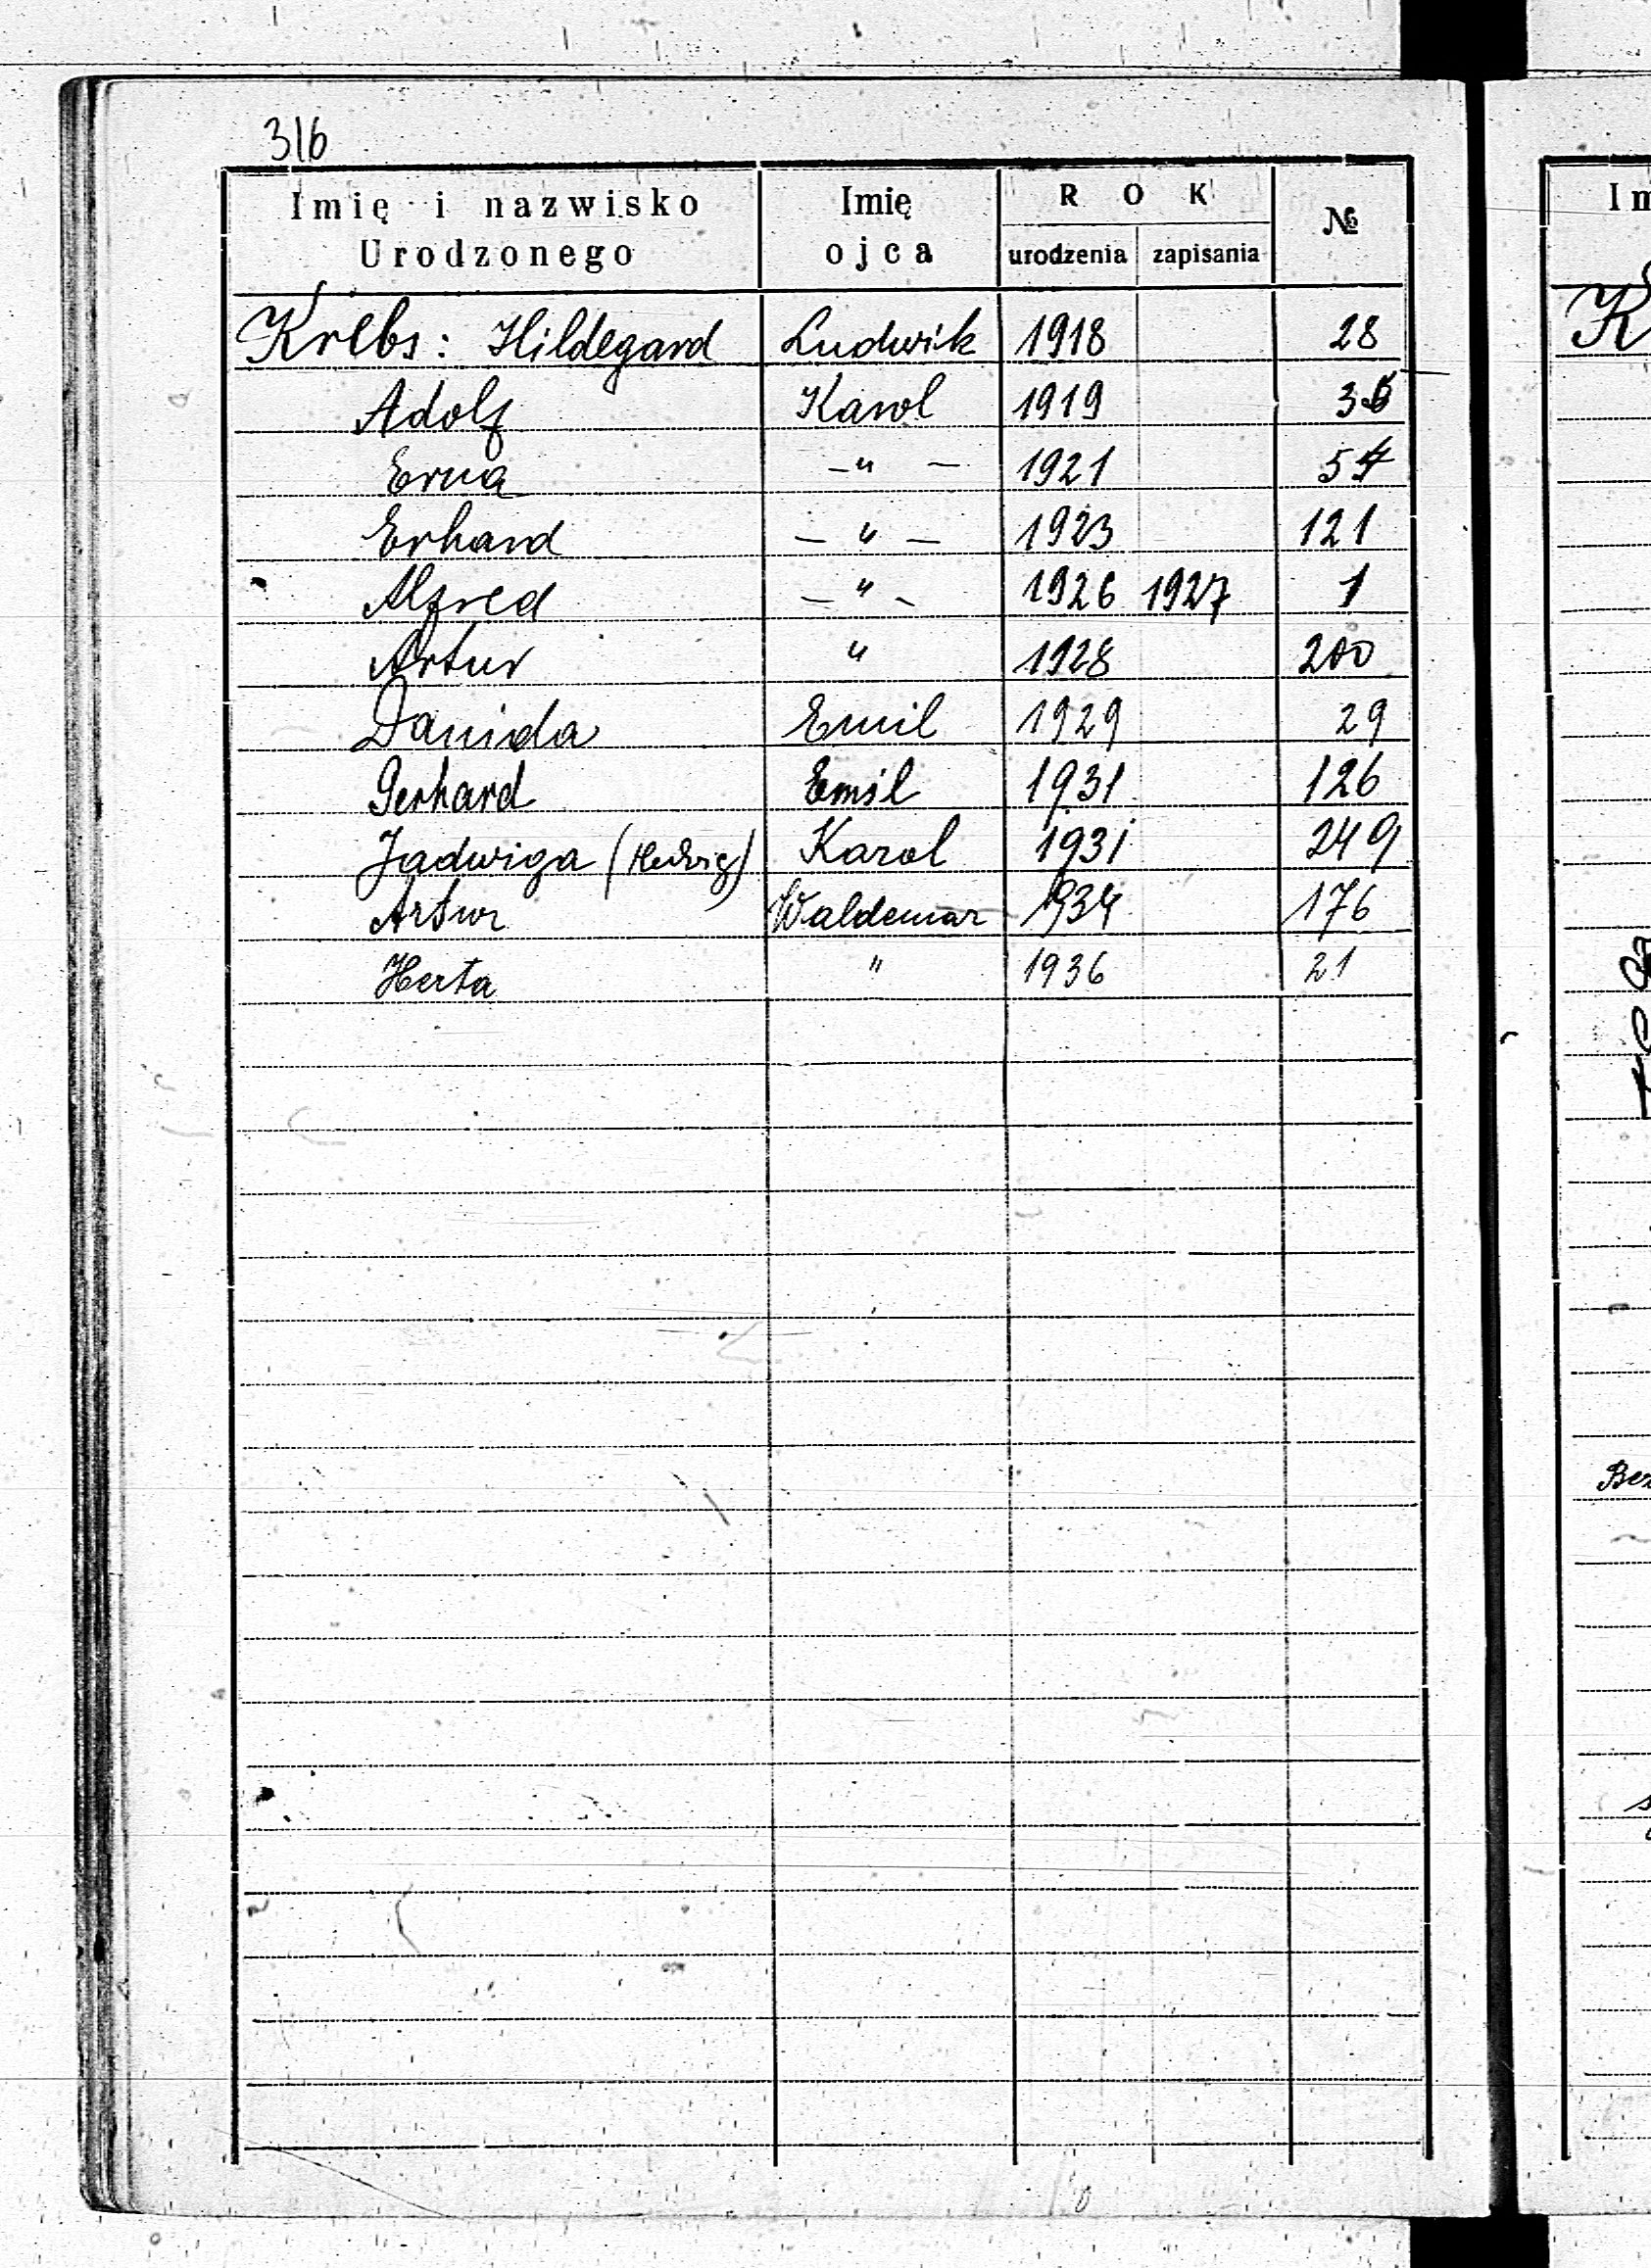 316
Imię i nazwisko Urodzonego Imię ojca ROK urodzenia zapisania №
Krebs: Hildegard Ludwik 1918 28
Adolf Karol 1919
Erna -"- 1921
Erhard -"- 1923 121
Alfred -"- 1926 1927 1
Artur " 1928 200
Danida Emil 1929 29
Gerhard Emil 1931 126
Jadwiga (Hedwig) Karol 1931 249
Artur Waldemar 1934 176
Herta " 1936 21